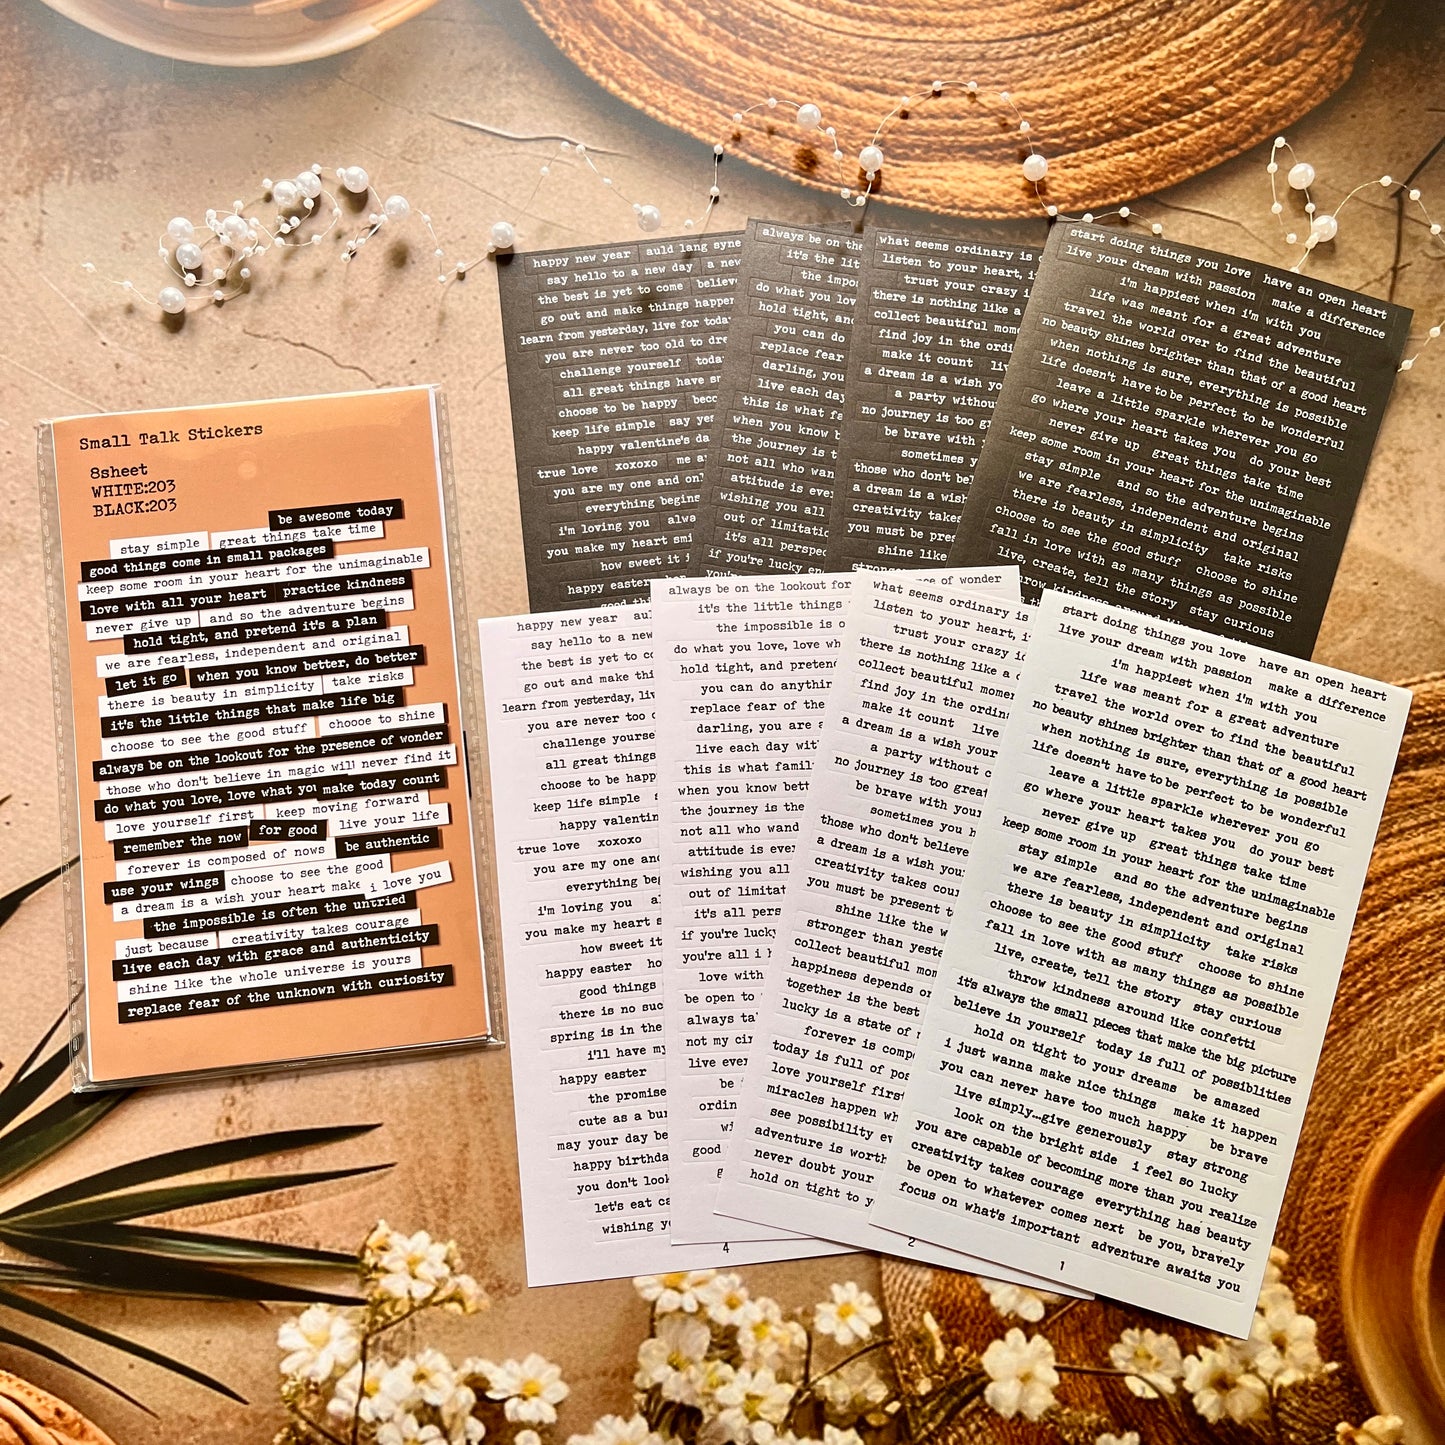 Small Talk Stickers
8sheet
WHITE:203
BLACK:203
be awesome today
stay simple great things take time
good things come in small packages
keep some room in your heart for the unimaginable
love with all your heart practice kindness
never give up and so the adventure begins
hold tight, and pretend it's a plan
we are fearless, independent and original
let it go when you know better, do better
there is beauty in simplicity take risks
it's the little things that make life big
choose to see the good stuff chooce to shine
always be on the lookout for the presence of wonder
those who don't believe in magic will never find it
do what you love, love what you make today count
love yourself first keep moving forward
remember the now for good live your life
forever is composed of nows be authentic
use your wings choose to see the good
a dream is a wish your heart make i love you
the impossible is often the untried
just because creativity takes courage
live each day with grace and authenticity
shine like the whole universe is yours
replace fear of the unknown with curiosity
happy new year auld lang syne
say hello to a new day a new
the best is yet to come believe
go out and make things happen
learn from yesterday, live for today
you are never too old to
challenge yourself today
all great things have
choose to be happy
keep life simple say yes
happy valentine's da
true love xoxoxo me
you are my one and on
everything begins
i'm loving you alwa
you make my heart smi
how sweet it i
happy easter
good thi
always be on the
it's the lit
the impo
do what you lov
hold tight, and
you can do
replace fear
darling, you
live each day
this is what fa
when you know b
the journey is t
not all who wan
attitude is eve
wishing you all
out of limitati
it's all perspe
if you're lucky en
you're
what seems ordinary is
listen to your heart, i
trust your crazy i
there is nothing like a
collect beautiful mom
find joy in the ordi
make it count liv
a dream is a wish yo
a party withou
no journey is too gr
be brave with
sometimes y
those who don't bel
a dream is a wish
creativity takes
you must be pres
shine like
stronger
start doing things you love have an open heart
live your dream with passion make a difference
i'm happiest when i'm with you
life was meant for a great adventure
travel the world over to find the beautiful
no beauty shines brighter than that of a good heart
when nothing is sure, everything is possible
life doesn't have to be perfect to be wonderful
leave a little sparkle wherever you go
go where your heart takes you do your best
never give up great things take time
keep some room in your heart for the unimaginable
stay simple and so the adventure begins
we are fearless, independent and original
there is beauty in simplicity take risks
choose to see the good stuff choose to shine
fall in love with as many things as possible
live, create, tell the story stay curious
throw kindness around
happy new year aul
say hello to a new
the best is yet to co
go out and make thi
learn from yesterday, liv
you are never too o
challenge yourse
all great things
choose to be happ
keep life simple
happy valentin
true love xoxoxo
you are my one and
everything beg
i'm loving you
you make my heart s
how sweet it
happy easter ho
good things
there is no suc
spring is in the
i'll have my
happy easter
the promise
cute as a bu
may your day be
happy birthda
you don't look
let's eat ca
wishing yo
4
always be on the lookout for
it's the little things
the impossible is o
do what you love, love wh
hold tight, and pretend
you can do anythin
replace fear of the
darling, you are a
live each day wit
this is what famil
when you know bett
the journey is the
not all who wand
attitude is ever
wishing you all
out of limitat
it's all pers
if you're lucky
you're all i
love with
be open to
always ta
not my cir
live ever
be
ordin
wi
good
g
ce of wonder
what seems ordinary is
listen to your heart, i
trust your crazy i
there is nothing like a
collect beautiful momen
find joy in the ordin
make it count live
a dream is a wish your
a party without c
no journey is too great
be brave with your
sometimes you h
those who don't believe
a dream is a wish your
creativity takes cour
you must be present t
shine like the w
stronger than yeste
collect beautiful mom
happiness depends on
together is the best
lucky is a state of
forever is comp
today is full of pos
love yourself first
miracles happen wh
see possibility ev
adventure is worth
never doubt your
hold on tight to y
2
start doing things you love have an open heart
live your dream with passion make a difference
i'm happiest when i'm with you
life was meant for a great adventure
travel the world over to find the beautiful
no beauty shines brighter than that of a good heart
when nothing is sure, everything is possible
life doesn't have to be perfect to be wonderful
leave a little sparkle wherever you go
go where your heart takes you do your best
never give up great things take time
keep some room in your heart for the unimaginable
stay simple and so the adventure begins
we are fearless, independent and original
there is beauty in simplicity take risks
choose to see the good stuff choose to shine
fall in love with as many things as possible
live, create, tell the story stay curious
throw kindness around like confetti
it's always the small pieces that make the big picture
believe in yourself today is full of possiblities
hold on tight to your dreams be amazed
i just wanna make nice things make it happen
you can never have too much happy be brave
live simply...give generously stay strong
look on the bright side i feel so lucky
you are capable of becoming more than you realize
creativity takes courage everything has beauty
be open to whatever comes next be you, bravely
focus on what's important adventure awaits you
1